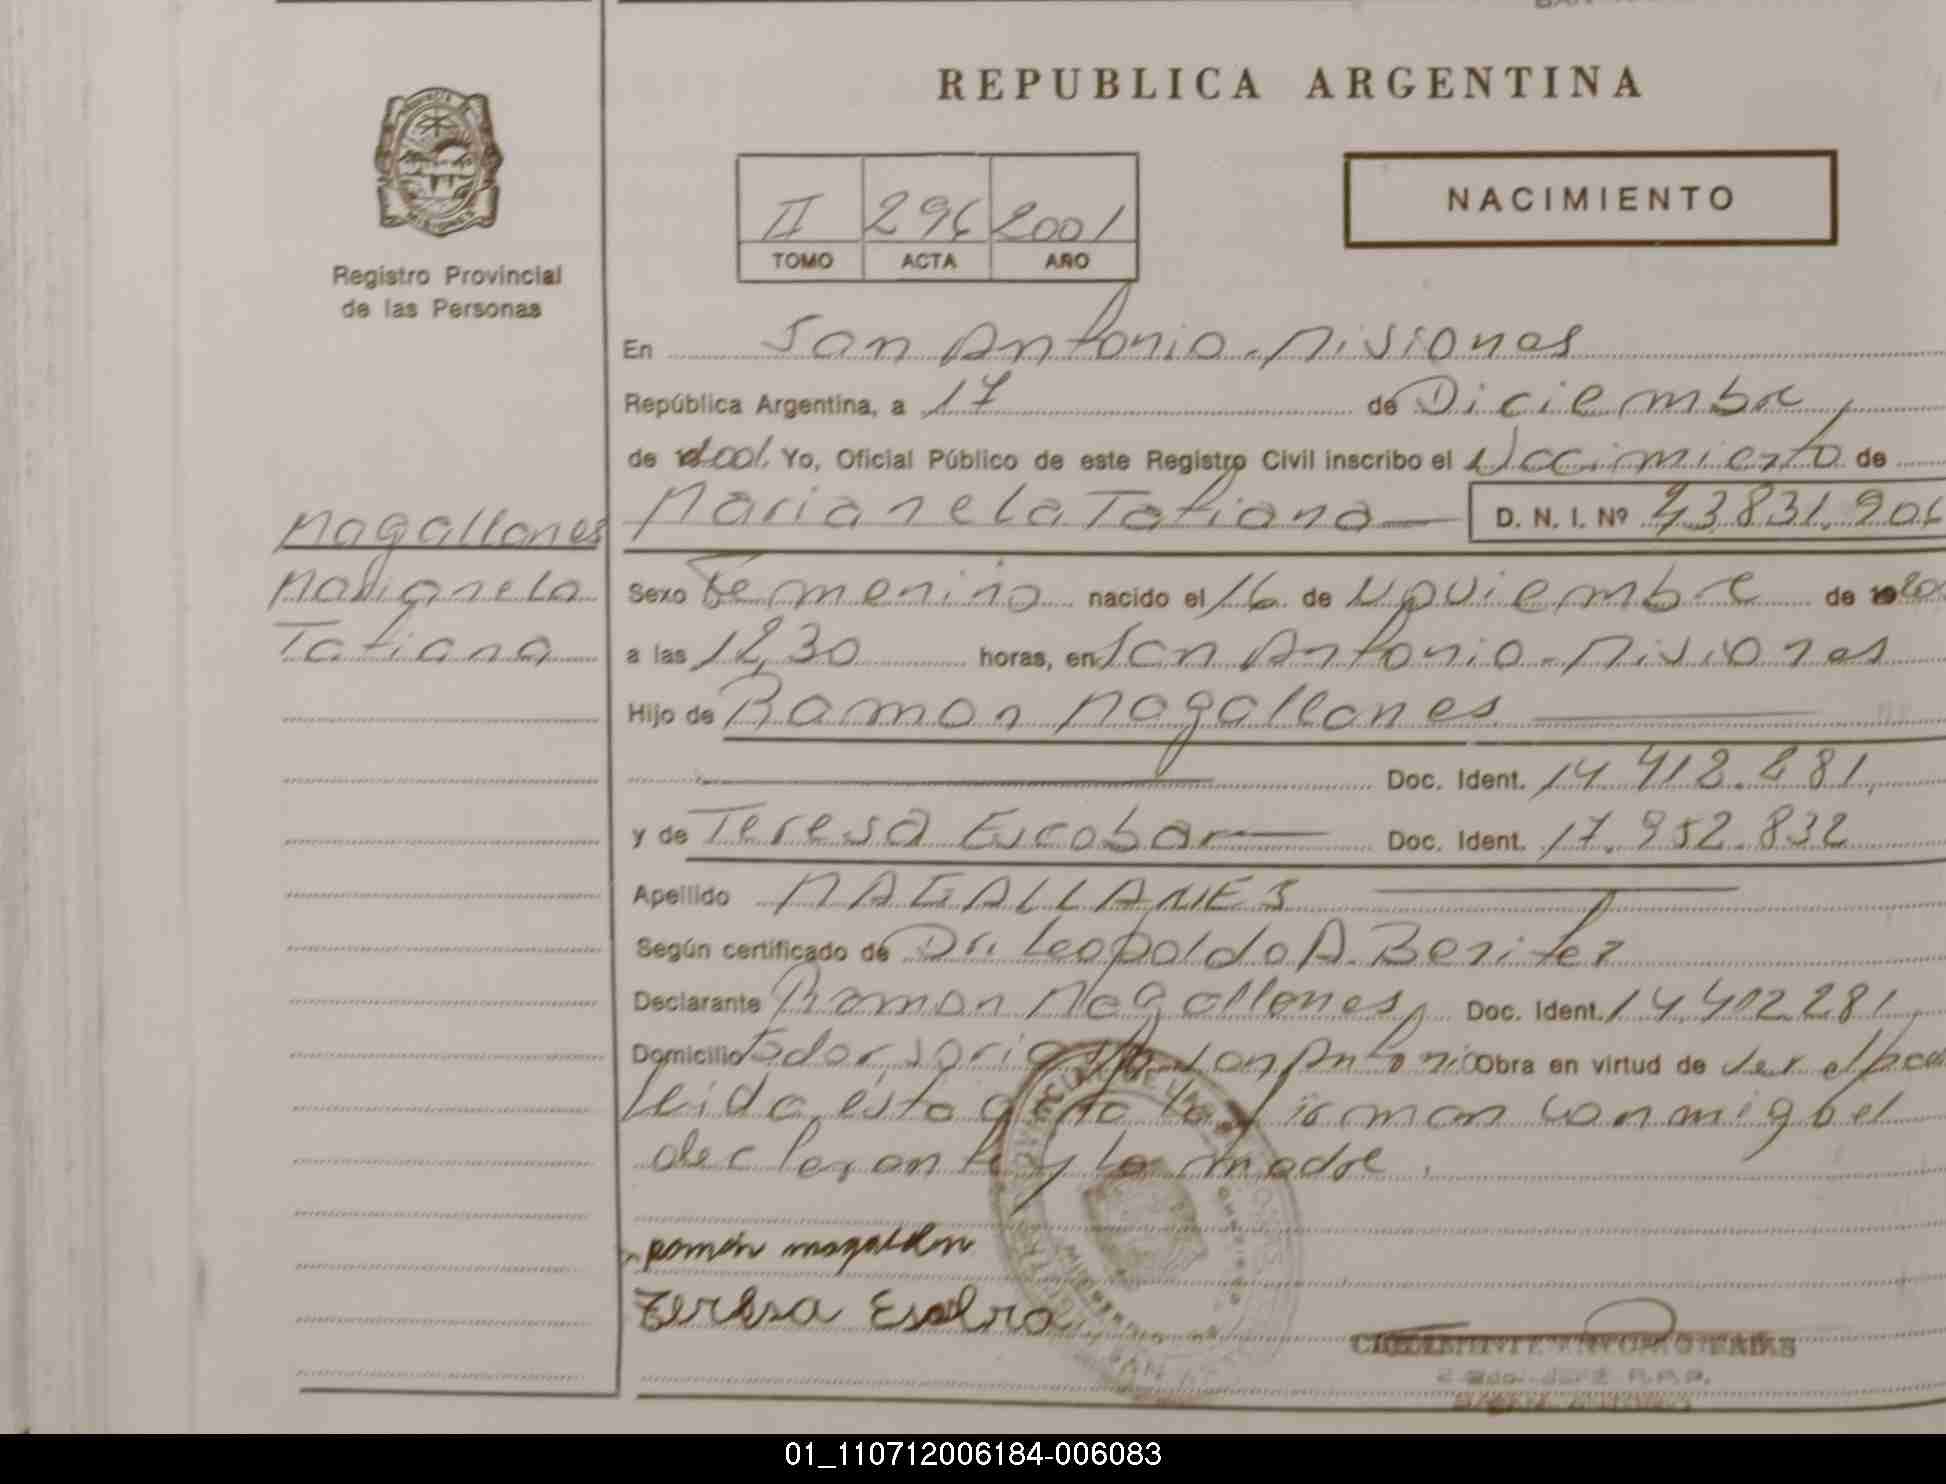 REPUBLICA ARGENTINA
NACIMIENTO
II 296 2001
TOMO ACTA AÑO
Registro Provincial
de las Personas
En San Antonio - Misiones
República Argentina, a 17 de Diciembre
de 2001 Yo, Oficial Público de este Registro Civil inscribo el Nacimiento de
Magallanes
Marianela Tatiana
D. N. I. Nº 43.831.906
Marianela
Tatiana
Sexo Femenino nacido el 16 de Noviembre de
a las 12,30 horas, en San Antonio - Misiones
Hijo de Ramon Magallanes
Doc. Ident. 14.412.281
y de Teresa Escobar Doc. Ident. 17.952.832
Apellido MAGALLANES
Según certificado de Dr. Leopoldo A. Benitez
Declarante Ramon Magallanes Doc. Ident. 14.412.281
Domicilio San Antonio Obra en virtud de ser el
leida esta acta la firman conmigo el
declarante y la madre.
Teresa
01_110712006184-006083